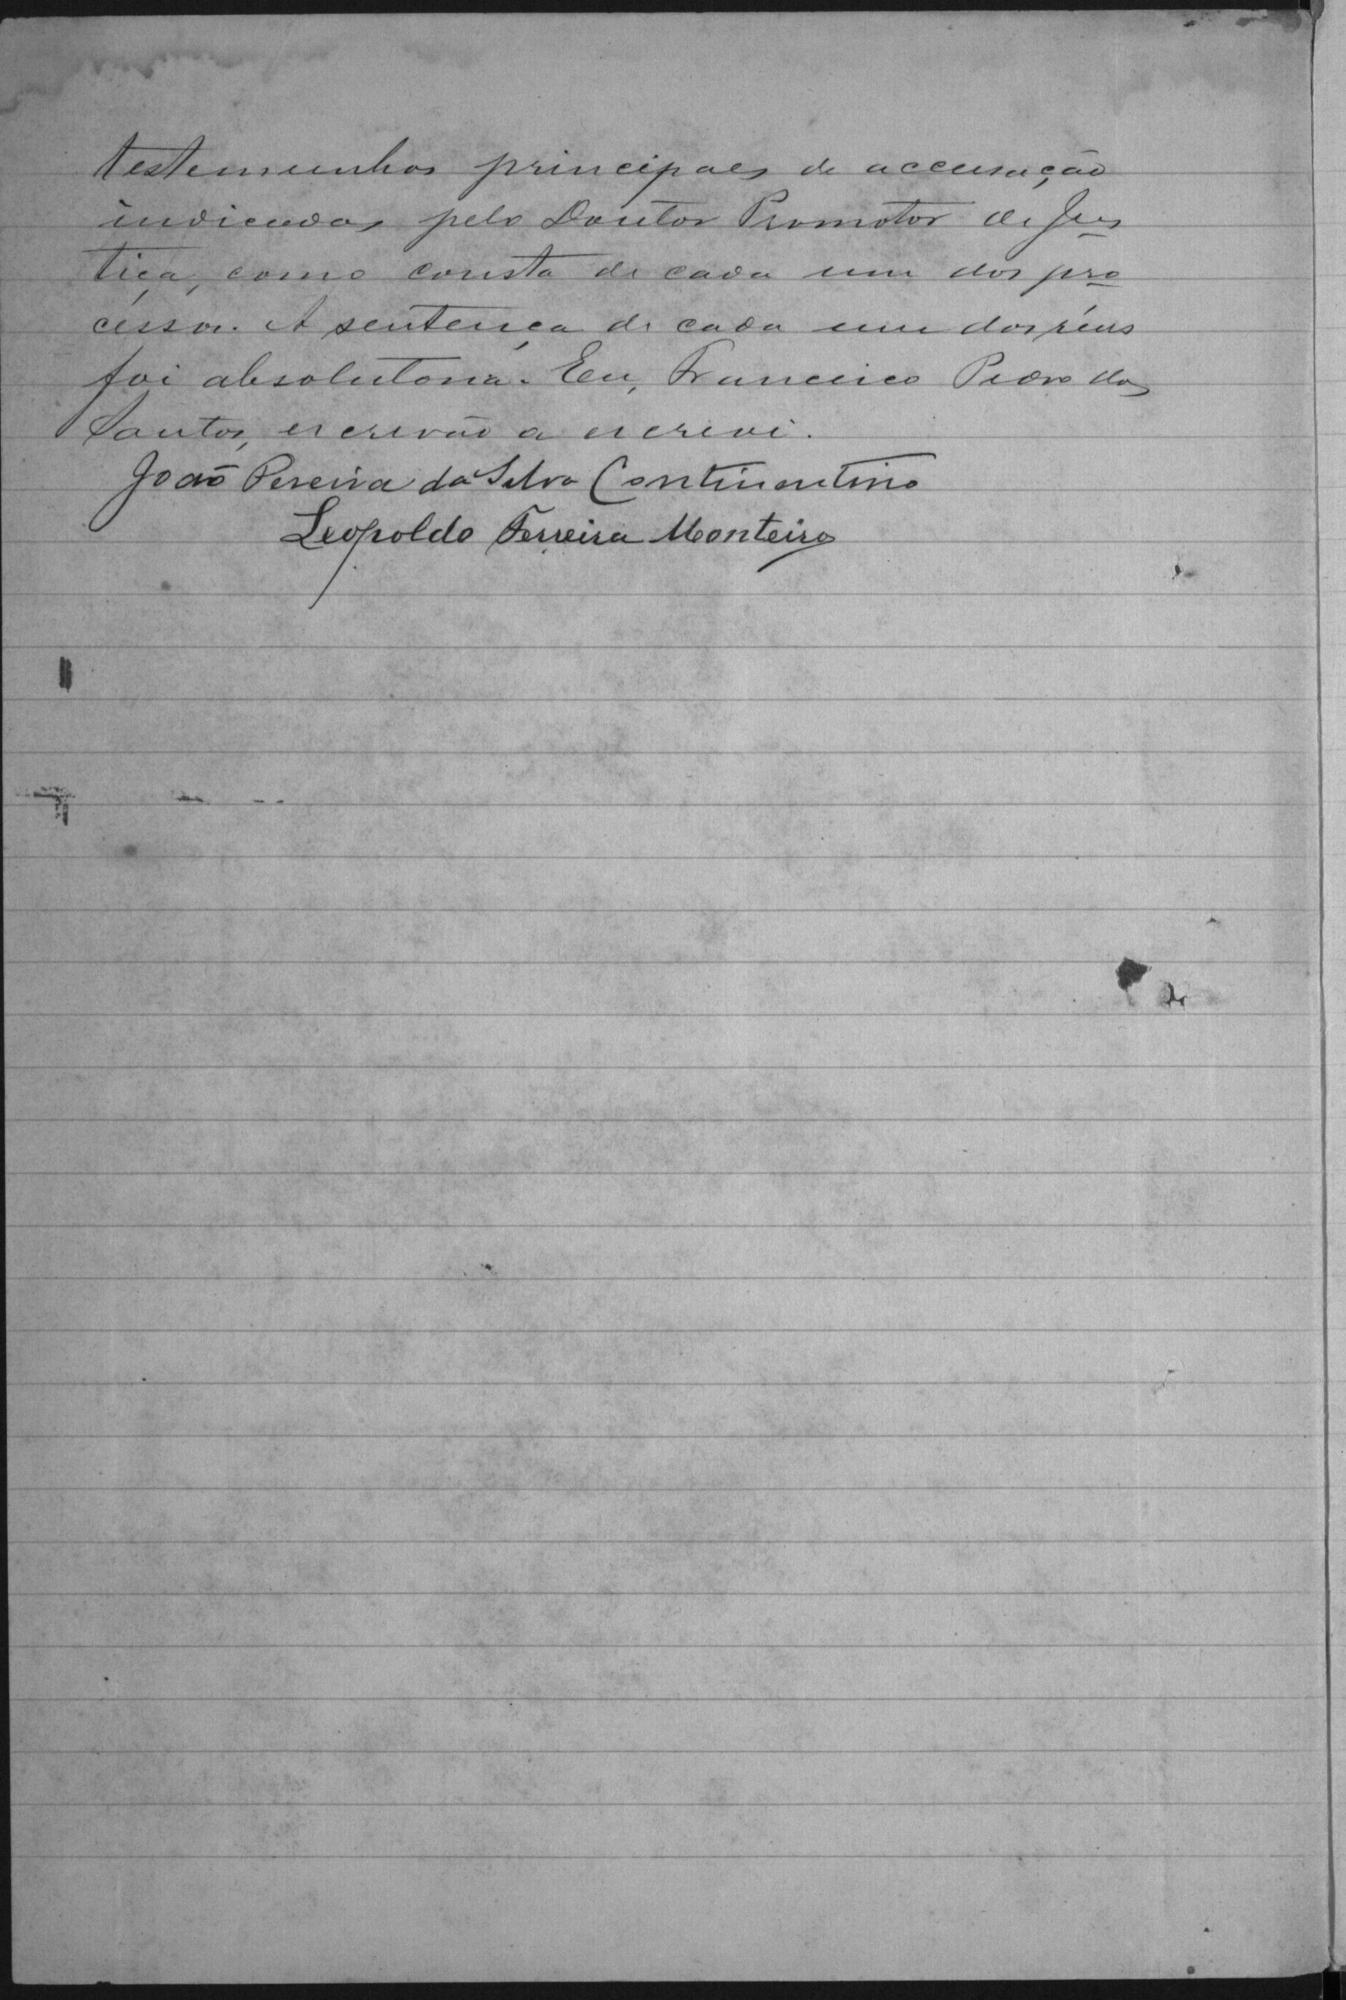 testemunhas principaes de accusação
indicadas pelo Doutor Promotor de Jus
tiça, como consta de cada um dos pro
cessos. A sentença de cada um dos réus
foi absolutoria. Eu, Francisco Pedro dos
Santos, escrivão a escrevi.
João Pereira da Silva Continentino
Leopoldo Ferreira Monteiro